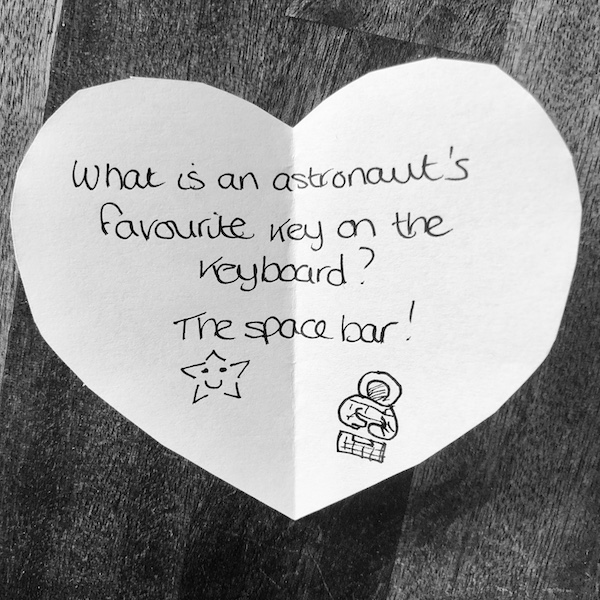 What is an astronaut's
favourite key on the
keyboard?
The space bar!